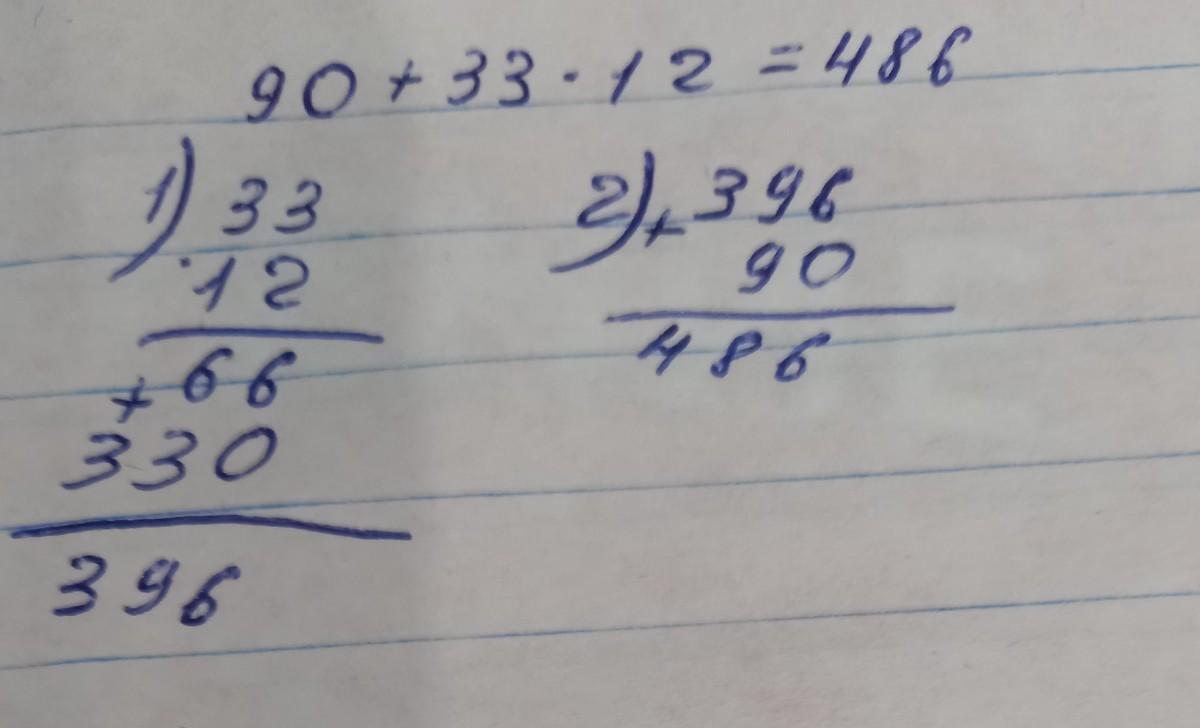 90 + 33 · 12 = 486
1) 33
· 12
+ 66
330
396
2) + 396
90
486